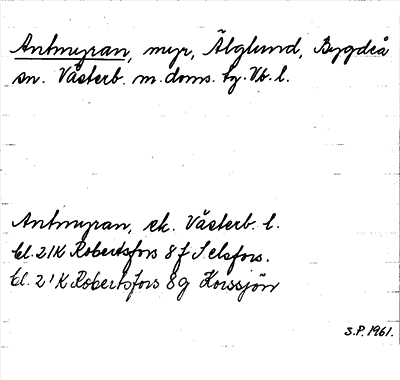 Antmyran, myr, Älglund, Bygdeå
sn. Västerb. m. doms. tg. Vb. l.
Antmyran, ek. Västerb. l.
bl. 21K Robertsfors 8 f Selsfors.
bl. 21K Robertsfors 8g Korssjön
S.P. 1961.